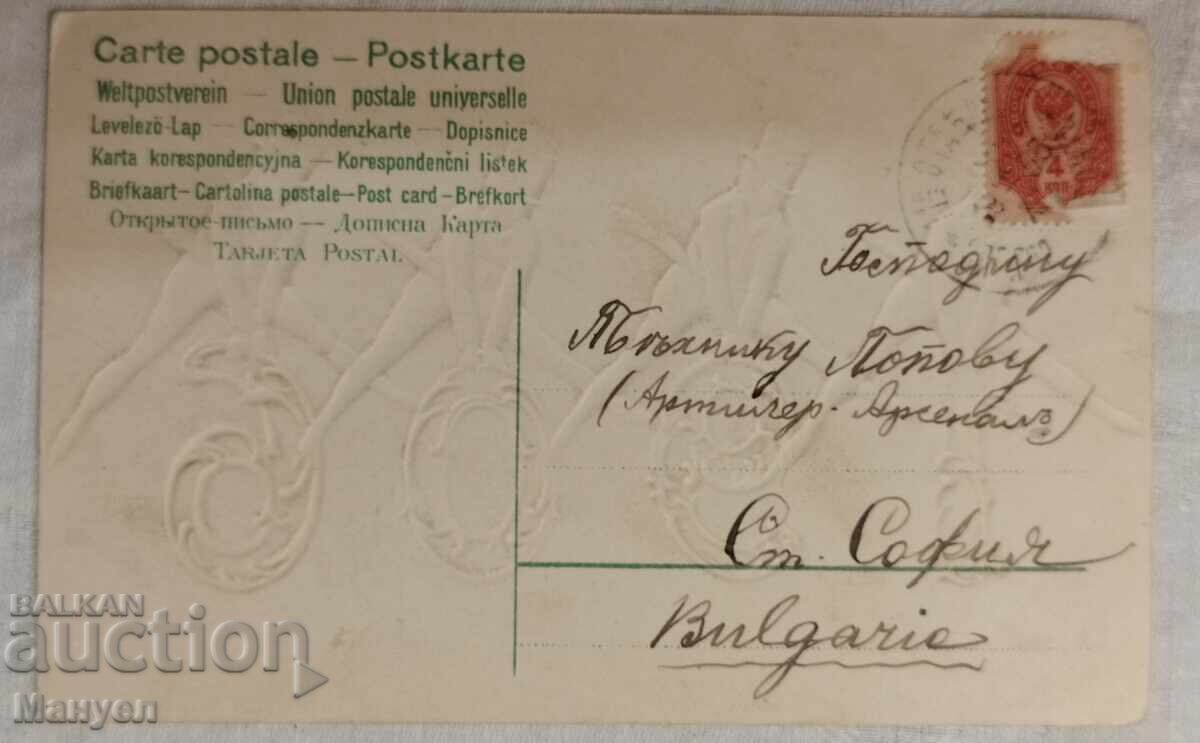 Carte postale — Postkarte
Weltpostverein — Union postale universelle
Levelező-Lap — Correspondenzkarte — Dopisnice
Karta korespondencyjna — Korespondenčni listek
Briefkaart — Cartolina postale — Post card - Brefkort
Открытое письмо — Дописна Карта
TARJETA POSTAL
4
КОП
Господину
Попову
(Артилер. Арсеналъ)
Ст. София
Bulgarie
BALKAN
auction
Мануел